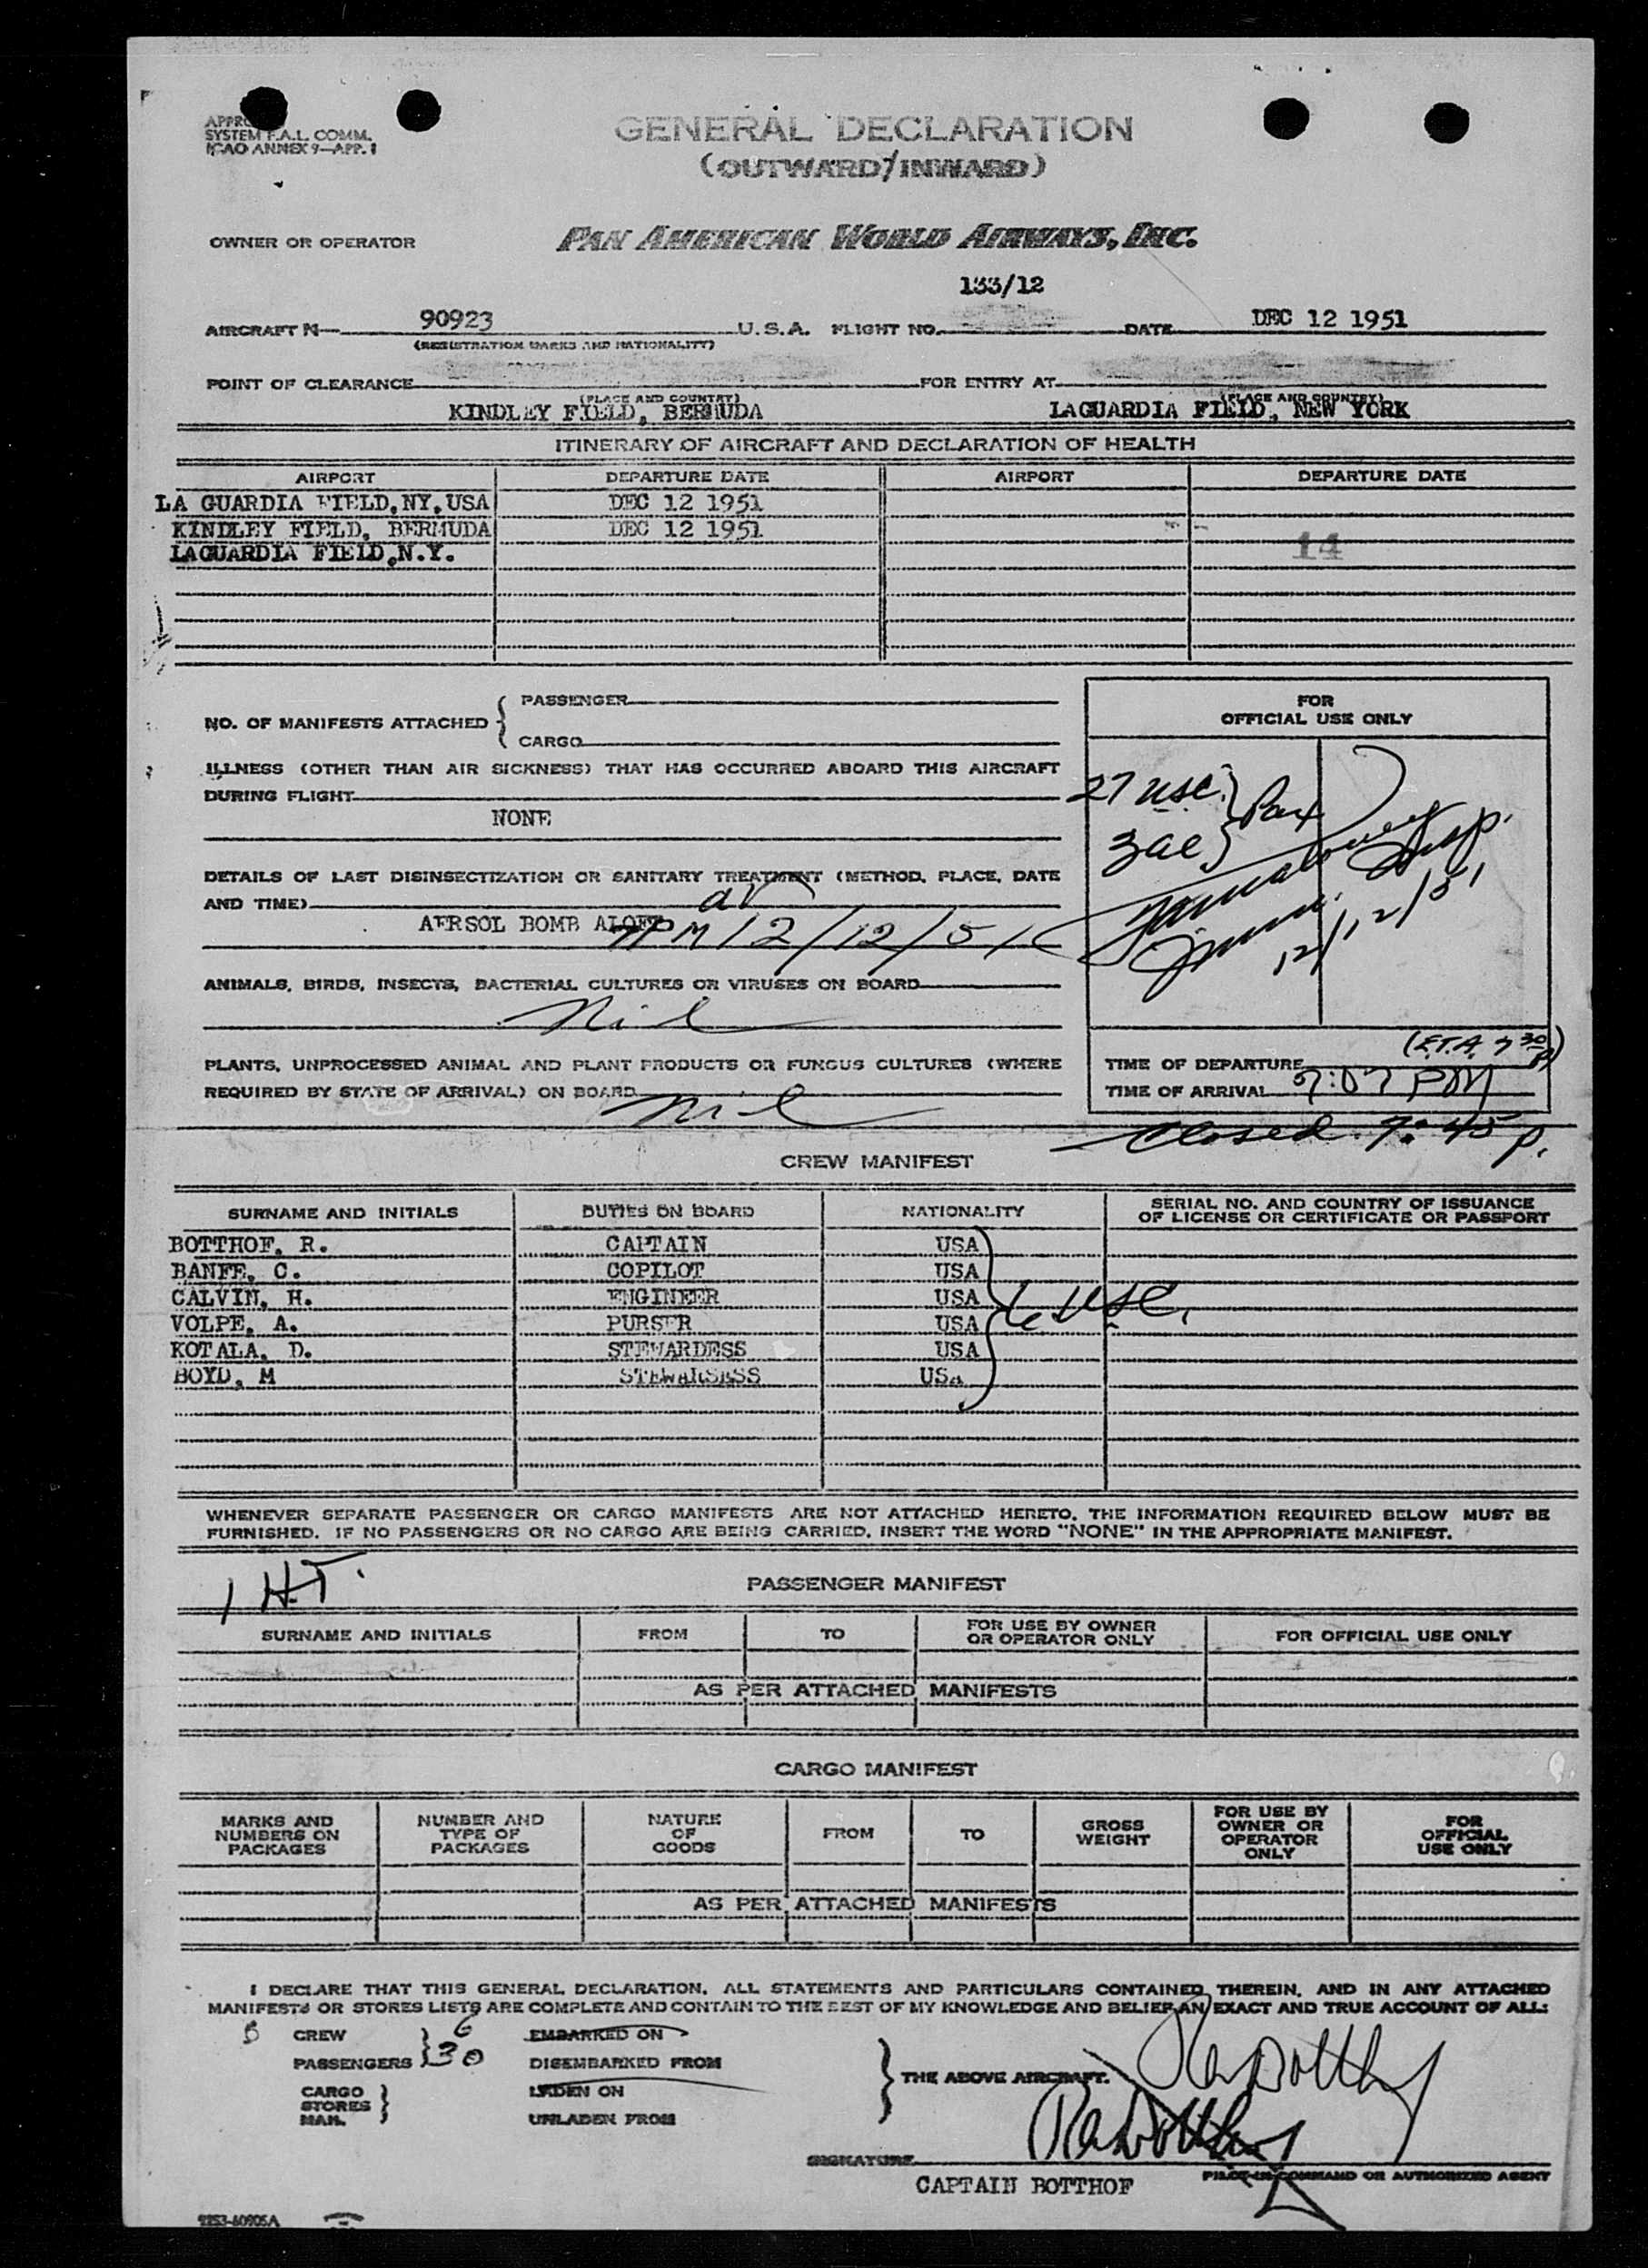 SYSTEM F.A.L. COMM.
ICAO ANNEX 9—APP. 1
GENERAL DECLARATION
(OUTWARD/INWARD)
OWNER OR OPERATOR PAN AMERICAN WORLD AIRWAYS, INC.
133/12
AIRCRAFT N— 90923 U.S.A. FLIGHT NO. DATE DEC 12 1951
(REGISTRATION MARKS AND NATIONALITY)
POINT OF CLEARANCE FOR ENTRY AT
(PLACE AND COUNTRY) (PLACE AND COUNTRY)
KINDLEY FIELD, BERMUDA LAGUARDIA FIELD, NEW YORK
ITINERARY OF AIRCRAFT AND DECLARATION OF HEALTH
AIRPORT DEPARTURE DATE AIRPORT DEPARTURE DATE
LA GUARDIA FIELD,NY,USA DEC 12 1951
KINDLEY FIELD, BERMUDA DEC 12 1951
LAGUARDIA FIELD,N.Y. 14
NO. OF MANIFESTS ATTACHED { PASSENGER
CARGO
FOR
OFFICIAL USE ONLY
ILLNESS (OTHER THAN AIR SICKNESS) THAT HAS OCCURRED ABOARD THIS AIRCRAFT
DURING FLIGHT
NONE
27 USC. } Pax
3 al }
Insp.
12/12/51
DETAILS OF LAST DISINSECTIZATION OR SANITARY TREATMENT (METHOD, PLACE, DATE
AND TIME)
AERSOL BOMB ALOFT PM 12/12/51
ANIMALS, BIRDS, INSECTS, BACTERIAL CULTURES OR VIRUSES ON BOARD
Nil
PLANTS, UNPROCESSED ANIMAL AND PLANT PRODUCTS OR FUNGUS CULTURES (WHERE
REQUIRED BY STATE OF ARRIVAL) ON BOARD
Nil
(E.T.A. 7 30 P)
TIME OF DEPARTURE
TIME OF ARRIVAL 7:07 PM
Closed 7:45 p.
CREW MANIFEST
SURNAME AND INITIALS DUTIES ON BOARD NATIONALITY SERIAL NO. AND COUNTRY OF ISSUANCE
OF LICENSE OR CERTIFICATE OR PASSPORT
BOTTHOF, R. CAPTAIN USA
BANFE, C. COPILOT USA
CALVIN, H. ENGINEER USA 6 USC.
VOLPE, A. PURSER USA
KOTALA, D. STEWARDESS USA
BOYD, M STEWARSESS USA
WHENEVER SEPARATE PASSENGER OR CARGO MANIFESTS ARE NOT ATTACHED HERETO, THE INFORMATION REQUIRED BELOW MUST BE
FURNISHED. IF NO PASSENGERS OR NO CARGO ARE BEING CARRIED, INSERT THE WORD "NONE" IN THE APPROPRIATE MANIFEST.
1 H.T.
PASSENGER MANIFEST
SURNAME AND INITIALS FROM TO FOR USE BY OWNER
OR OPERATOR ONLY FOR OFFICIAL USE ONLY
AS PER ATTACHED MANIFESTS
CARGO MANIFEST
MARKS AND
NUMBERS ON
PACKAGES
NUMBER AND
TYPE OF
PACKAGES
NATURE
OF
GOODS
FROM
TO
GROSS
WEIGHT
FOR USE BY
OWNER OR
OPERATOR
ONLY
FOR
OFFICIAL
USE ONLY
AS PER ATTACHED MANIFESTS
I DECLARE THAT THIS GENERAL DECLARATION, ALL STATEMENTS AND PARTICULARS CONTAINED THEREIN, AND IN ANY ATTACHED
MANIFESTS OR STORES LISTS ARE COMPLETE AND CONTAIN TO THE BEST OF MY KNOWLEDGE AND BELIEF AN EXACT AND TRUE ACCOUNT OF ALL:
CREW } 6 EMBARKED ON
PASSENGERS } 30 DISEMBARKED FROM
THE ABOVE AIRCRAFT.
CARGO
STORES
MAIL
LADEN ON
UNLADEN FROM
SIGNATURE
CAPTAIN BOTTHOF PILOT-IN-COMMAND OR AUTHORIZED AGENT